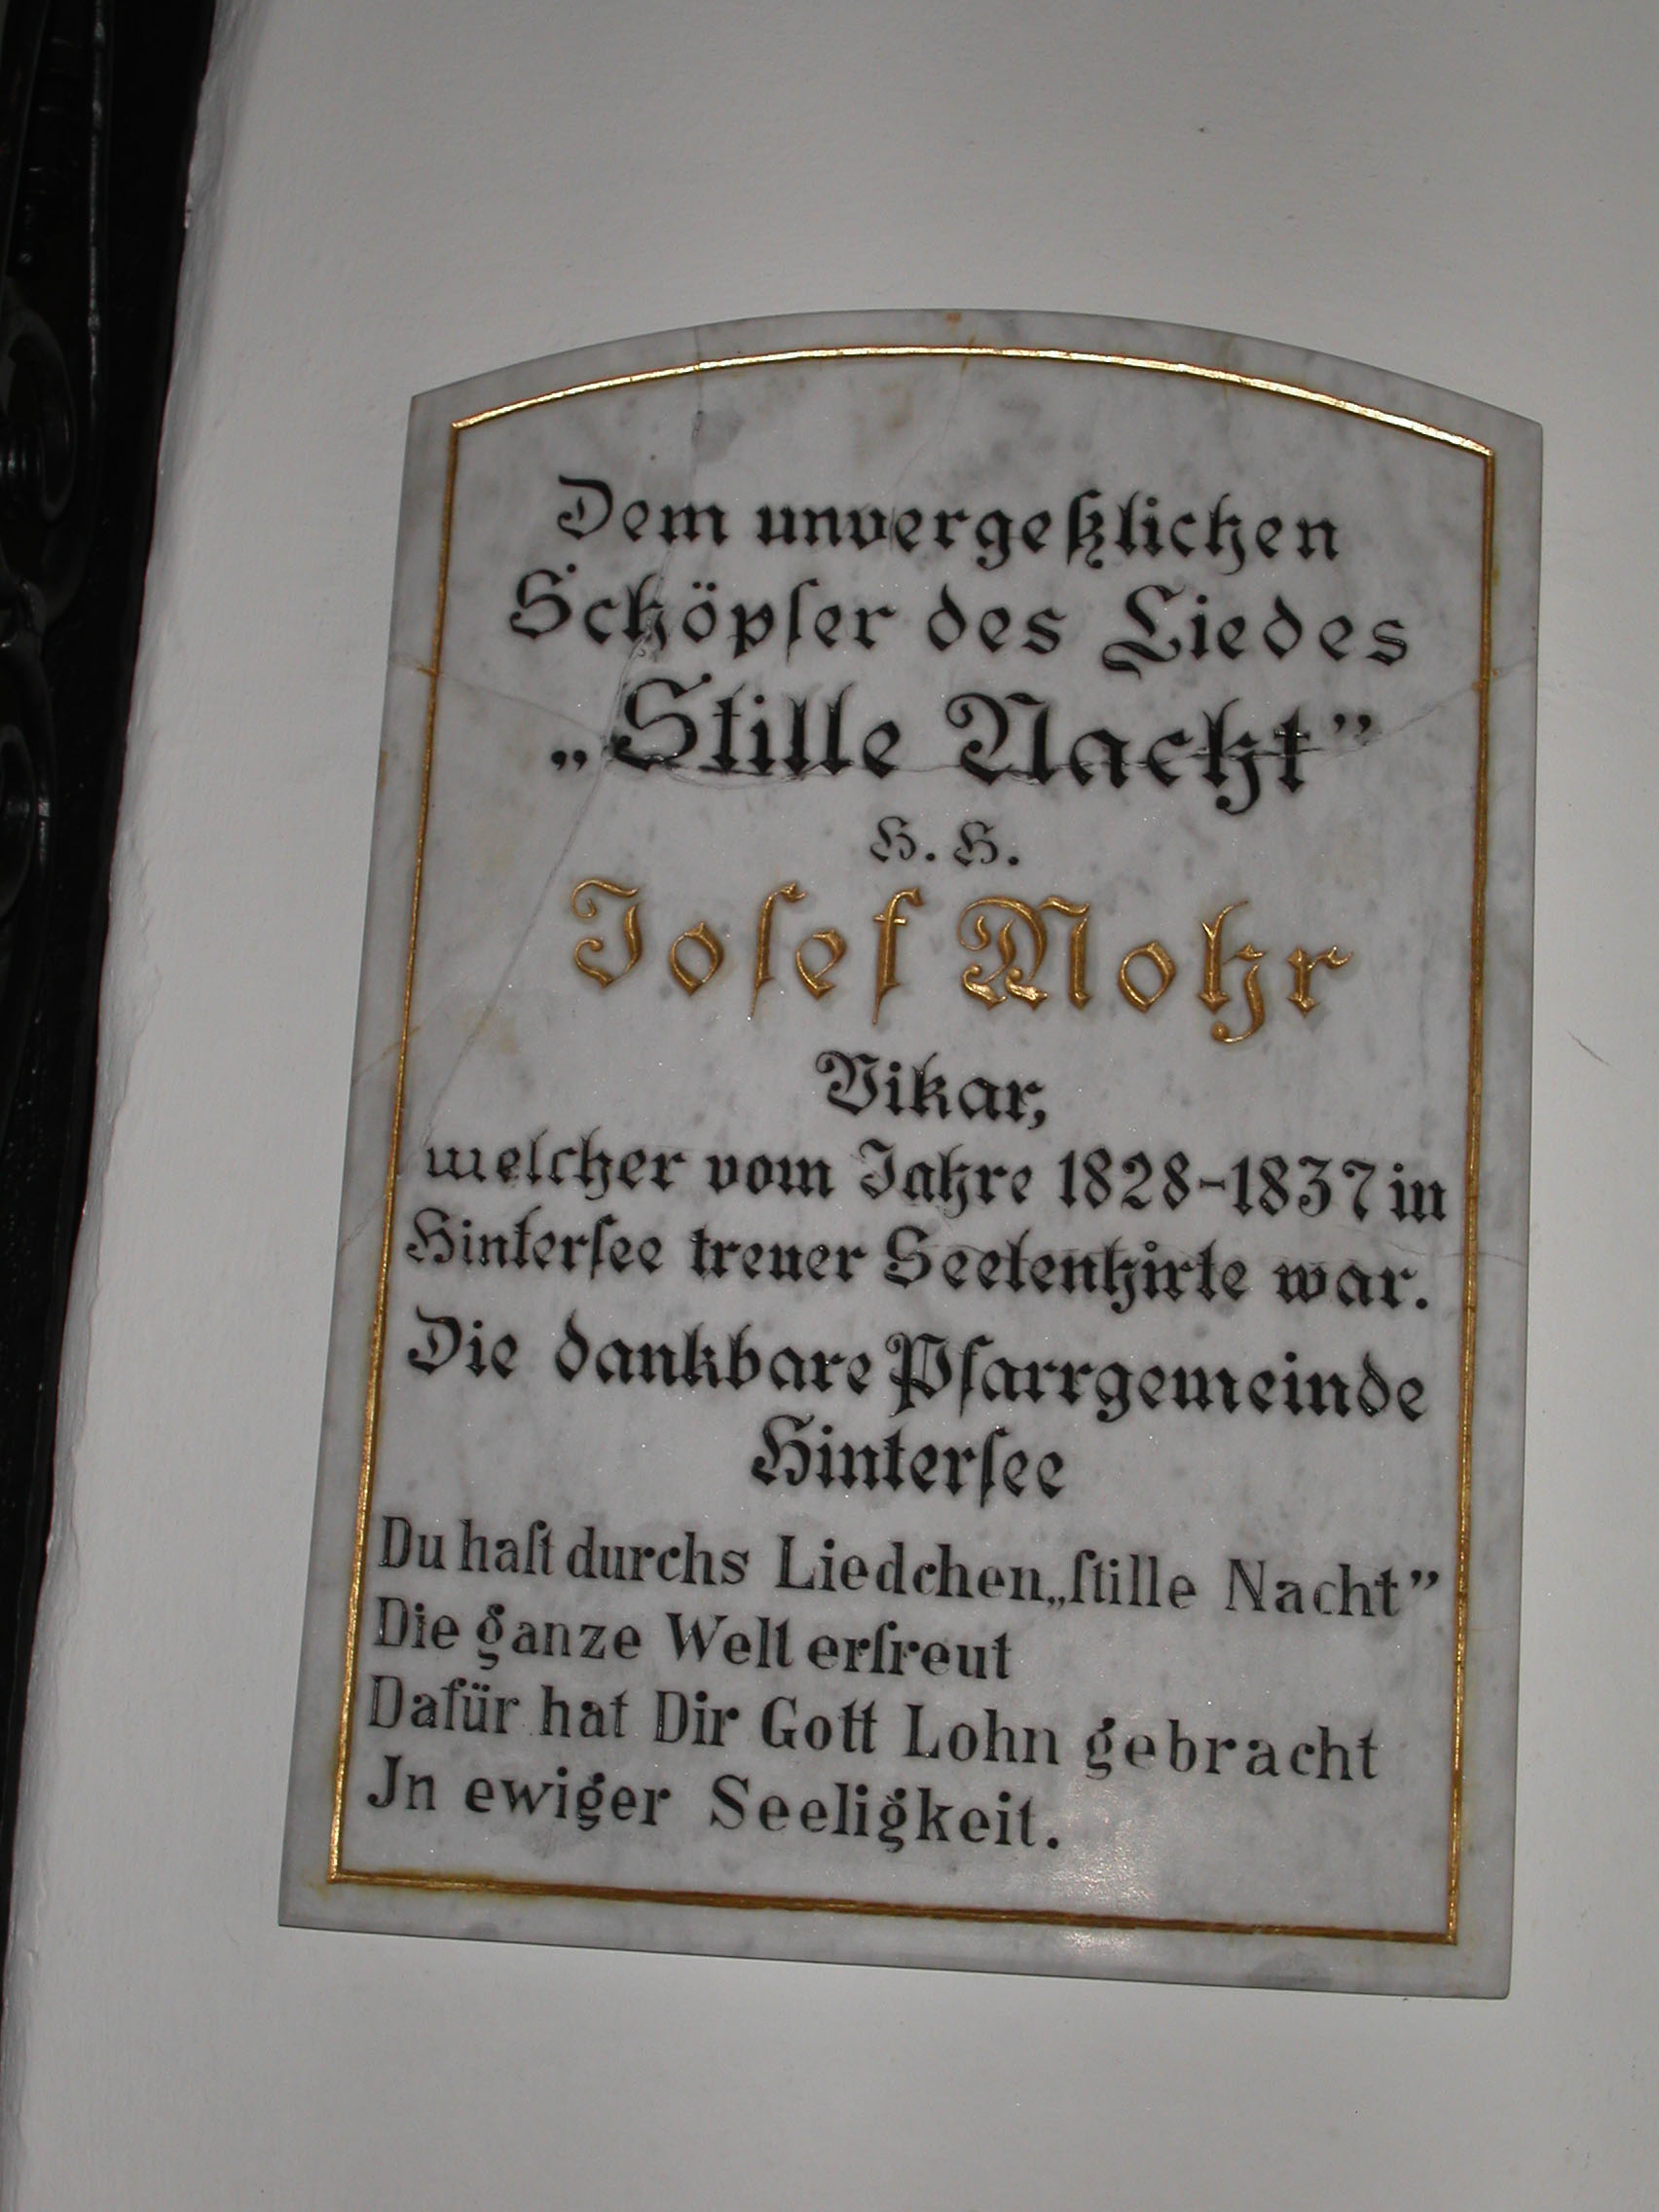 Dem unvergeßlichen
Schöpfer des Liedes
„Stille Nacht”
H. H.
Josef Mohr
Vikar,
welcher vom Jahre 1828-1837 in
Hintersee treuer Seelenhirte war.
Die dankbare Pfarrgemeinde
Hintersee
Du haſt durchs Liedchen „ſtille Nacht”
Die ganze Welt erfreut
Dafür hat Dir Gott Lohn gebracht
Jn ewiger Seeligkeit.